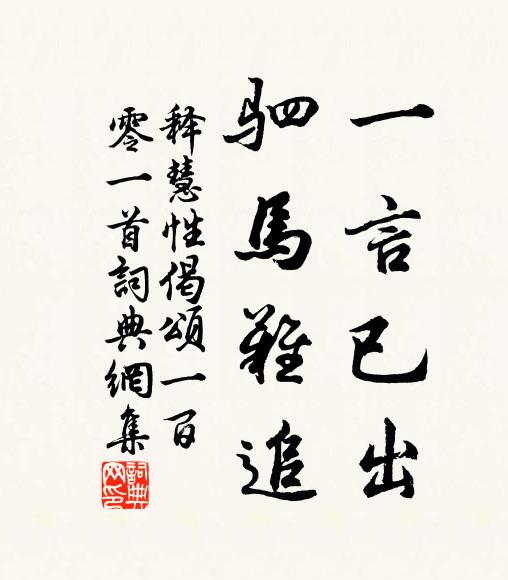 一言已出
駟馬難追
释慧性偈頌一百
零一首詞典網集
詞典网印